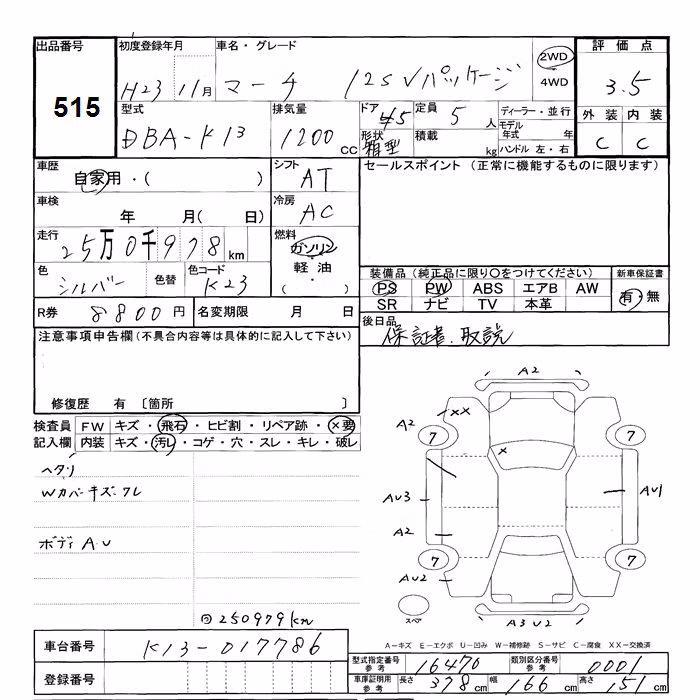 出品番号 初度登録年月 車名・グレード 2WD 評価点
515 H23 11月 マーチ 125Vパッケージ 4WD 3.5
型式 排気量 ドア 定員 ディーラー・並行 外装 内装
DBA-K13 1200 cc 45 5人 モデル年式 年 C C
形状 箱型 積載 kg ハンドル 左・右
車歴 シフト セールスポイント (正常に機能するものに限ります)
自家用・( ) AT
車検 冷房
年 月( 日) AC
走行 燃料
25万0千978km ガソリン
・
色 色替 色コード 軽油 装備品 (純正品に限り○をつけてください) 新車保証書
シルバー K23 ・ PS PW ABS エアB AW 有・無
SR ナビ TV 本革
R券 8800円 名変期限 月 日 後日品
保証書、取説
注意事項申告欄(不具合内容等は具体的に記入して下さい)
修復歴 有 〔箇所 〕
検査員 FW キズ・飛石・ヒビ割・リペア跡・×要
記入欄 内装 キズ・汚レ・コゲ・穴・スレ・キレ・破レ
ヘタリ
Wカバーキズ・ワレ
ボディ A.U
250979km
A2
A2 XX
7 7
X
AU3 AU1
A2
7 7
AU2
スペア A3 U2
A-キズ E-エクボ U-凹み W-補修跡 S-サビ C-腐食 XX-交換済
車台番号 K13-017786 型式指定番号 参考 16470 類別区分番号 参考 0001
登録番号 車庫証明用 参考 長さ 378cm 幅 166cm 高さ 151cm